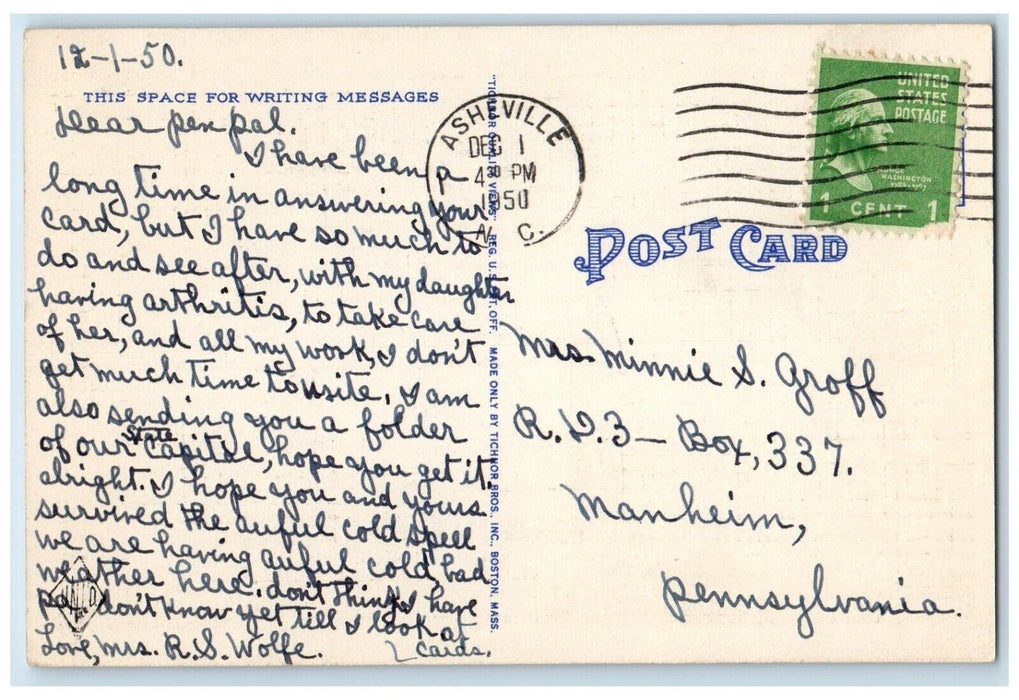 12-1-50.
THIS SPACE FOR WRITING MESSAGES
Dear pen pal.
I have been a
long time in answering your
card, but I have so much to
do and see after, with my daughter
having arthritis, to take care
of her, and all my work, I don't
get much time to write, I am
also sending you a folder
of our State Capital, hope you get it.
alright. I hope you and yours
survived the auful cold spell
we are having auful cold, bad
weather here. don't think I have
don't know yet till I look at
Love, Mrs. R.S. Wolfe. cards.
"TICHNOR QUALITY VIEWS" REG. U. S. PAT. OFF. MADE ONLY BY TICHNOR BROS., INC., BOSTON, MASS.
ASHEVILLE
DEC 1
4 30 PM
1950
N. C.
UNITED
STATES
POSTAGE
GEORGE
WASHINGTON
1789-1797
1 CENT 1
POST CARD
Mrs. Minnie S. Groff
R.D.3 - Box, 337.
Manheim,
Pennsylvania.